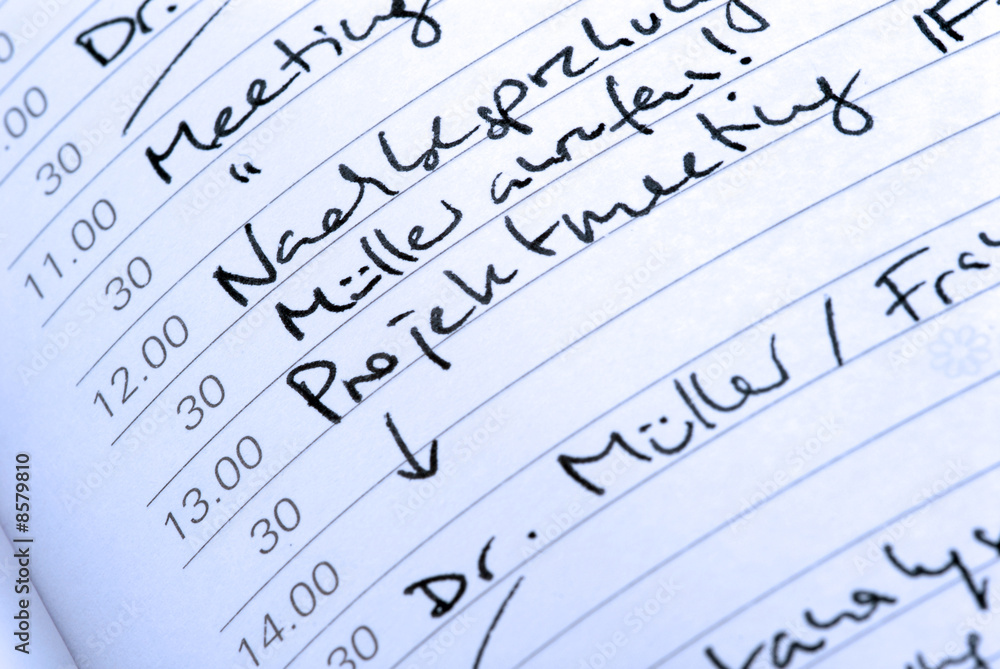 .00 Dr.
30
11.00 Meeting
30 "
12.00 Nachbesprechung
30 Müller anrufen!!
13.00 Projektmeeting
30 ↓
14.00
30 Dr. Müller /
Adobe Stock | #8579810